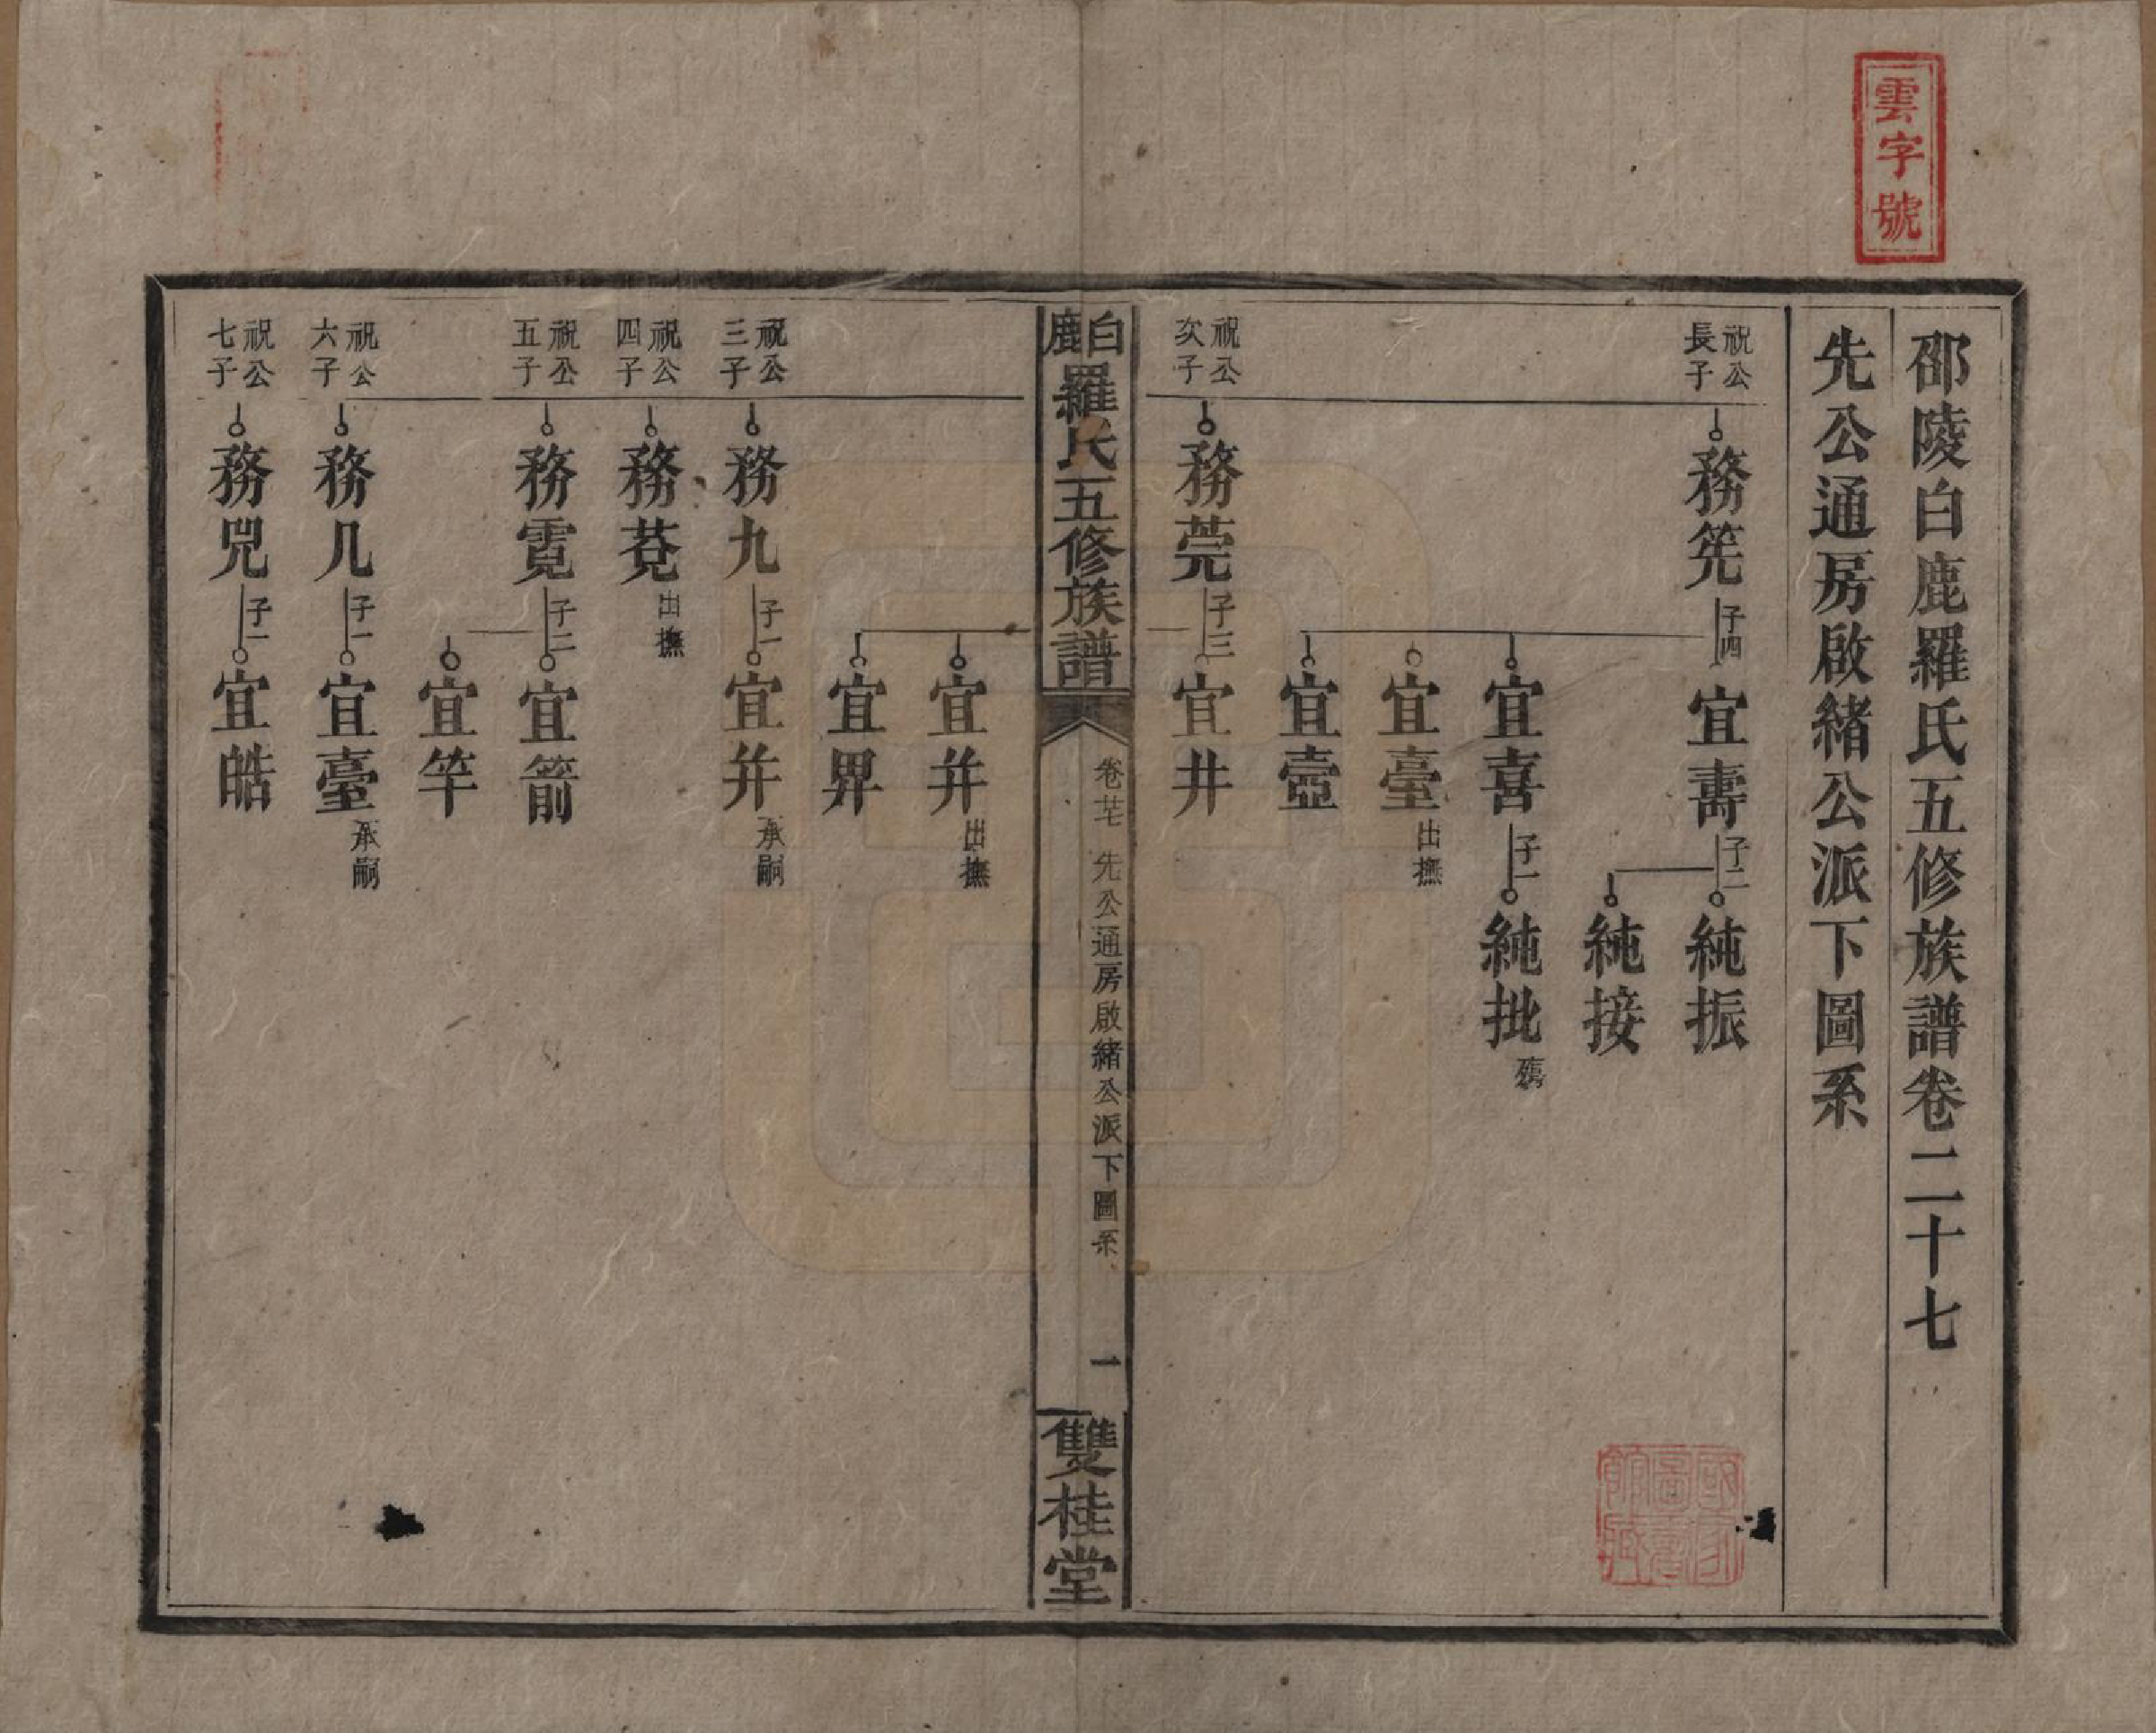 雲字號
邵陵白鹿羅氏五修族譜卷二十七
先公通房啟緒公派下圖系
祝公長子 務筅 子四 宜壽 子二 純振
純接
宜喜 子一 純批 殤
宜臺 出撫
宜壺
祝公次子 務莞 子三 宜井
白鹿羅氏五修族譜 卷廿七 先公通房啟緒公派下圖系 一 雙桂堂
宜并 出撫
宜畀
祝公三子 務九 子一 宜并 承嗣
祝公四子 務菪 出撫
祝公五子 務霓 子二 宜箭
宜竿
祝公六子 務几 子一 宜臺 承嗣
祝公七子 務兕 子一 宜皓
國家圖書館藏